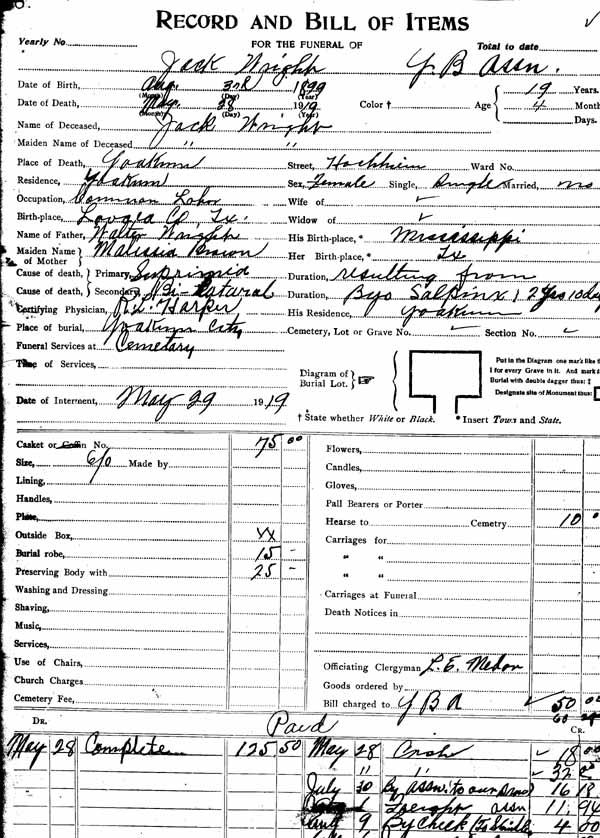 RECORD AND BILL OF ITEMS
Yearly No. FOR THE FUNERAL OF Total to date
Jack Wright Y B Assn.
Date of Birth, Aug. 3rd 1899 (Month) (Day) (Year) Color † Age 19 Years.
Date of Death, May. 28 1919 (Month) (Day) (Year) 4 Month
Days.
Name of Deceased, Jack Wright
Maiden Name of Deceased " "
Place of Death, Yoakum Street, Hochheim Ward No.
Residence, Yoakum Sex, Female Single, Single Married, no
Occupation, Common Labor Wife of ✓
Birth-place, Co, Tx. Widow of ✓
Name of Father, Walter Wright His Birth-place, * Mississippi
Maiden Name of Mother Malissia Brown Her Birth-place, * Tx
Cause of death, Primary, Duration, resulting from
Cause of death, Secondary, Bi- Duration, Pyo Salpinx 2 yrs 10 days
Certifying Physician, Harper His Residence, Yoakum
Place of burial, Yoakum City Cemetery, Lot or Grave No. ✓ Section No. ✓
Funeral Services at Cemetary
Time of Services,
Diagram of Burial Lot.
Put in the Diagram one mark like t
I for every Grave in it. And mark
Burial with double dagger thus: ‡
Designate site of Monument thus:
Date of Interment, May 29 1919
† State whether White or Black. * Insert Town and State.
Casket or Coffin No. 75 00 Flowers,
Size, 6/0 Made by Candles,
Lining, Gloves,
Handles, Pall Bearers or Porter
Plate, Hearse to Cemetry 10
Outside Box, XX Carriages for
Burial robe, 15 - " "
Preserving Body with 25 - " "
Washing and Dressing Carriages at Funeral
Shaving, Death Notices in
Music,
Services,
Use of Chairs, Officiating Clergyman L. E.
Church Charges Goods ordered by
Cemetery Fee, Bill charged to Y B A ✓ 50 00
DR. Paid CR.
May 28 Complete 125 50 May 28 Cash ✓ 18 00
" " ✓ 32
July 30 By assn. to our 16 18
1 assn 11.94
Aug 9 By Check 4 00